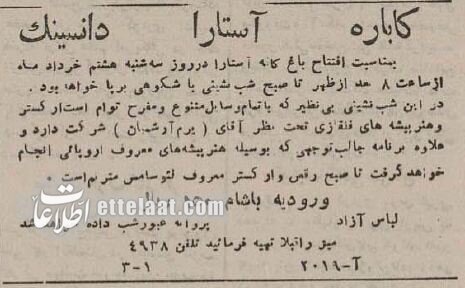 کاباره آستارا دانسینک
بمناسبت افتتاح باغ کافه آستارا در روز سه‌شنبه هشتم خرداد ماه
از ساعت ۸ بعد از ظهر تا صبح شب نشینی با شکوهی برپا خواهد بود.
در این شب‌نشینی بی‌نظیر که با تمام وسایل متنوع و مفرح توام است ارکستر
و هنرپیشه های قفقازی تحت نظر آقای (برم آرشمان) شرکت دارد و
علاوه برنامه جالب توجهی که بوسیله هنرپیشه‌های معروف اروپائی انجام
خواهد گرفت تا صبح رقص و ارکستر معروف مترنم است.
ورودیه باشام
لباس آزاد پروانه عبور شب داده
میز را قبلا تهیه فرمائید تلفن ۴۹۳۸
آ-۲۰۱۹ ۳-۱
اطلاعات
ettelaat.com